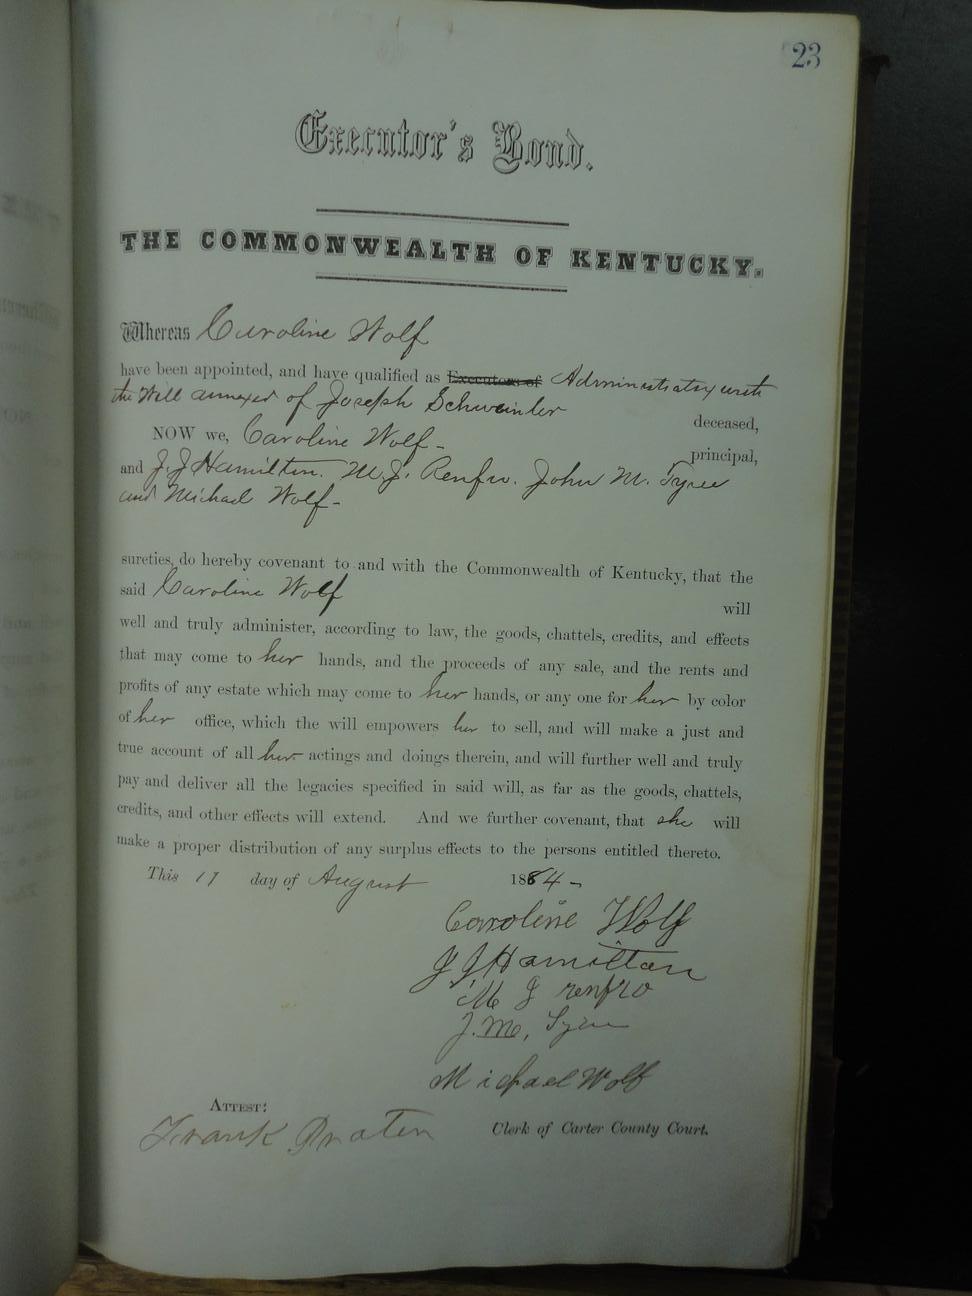 23
Executor's Bond.
THE COMMONWEALTH OF KENTUCKY.
Whereas Caroline Wolf
have been appointed, and have qualified as Executors of Administratrix with
the Will annexed of Joseph Schweinler
deceased,
NOW we, Caroline Wolf-
principal,
and J. J Hamilton. M. J. Renfro. John M. Tyree
and Michael Wolf-
sureties, do hereby covenant to and with the Commonwealth of Kentucky, that the
said Caroline Wolf will
well and truly administer, according to law, the goods, chattels, credits, and effects
that may come to her hands, and the proceeds of any sale, and the rents and
profits of any estate which may come to her hands, or any one for her by color
of her office, which the will empowers her to sell, and will make a just and
true account of all her actings and doings therein, and will further well and truly
pay and deliver all the legacies specified in said will, as far as the goods, chattels,
credits, and other effects will extend. And we further covenant, that she will
make a proper distribution of any surplus effects to the persons entitled thereto.
This day of August 1884-
Caroline Wolf
J J Hamilton
M J renfro
J. M, Tyree
Michael Wolf
ATTEST:
Frank Prater Clerk of Carter County Court.